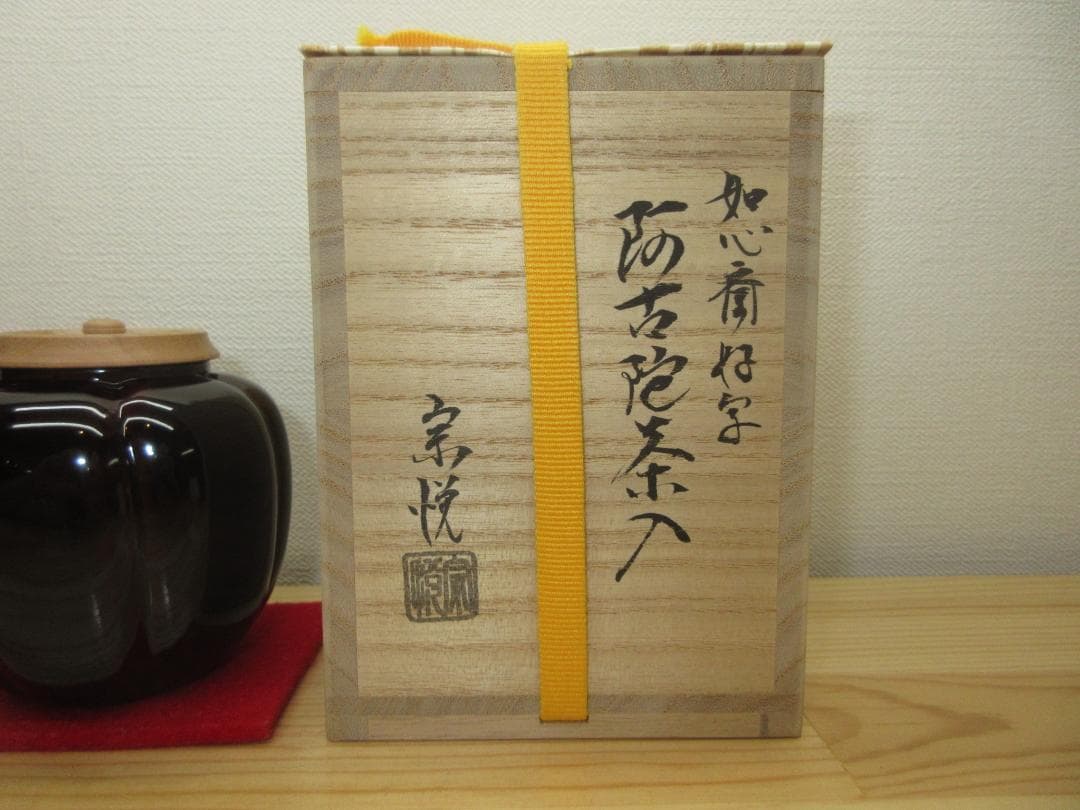 如心斎好写
阿古陀茶入
宗悦
宗悦